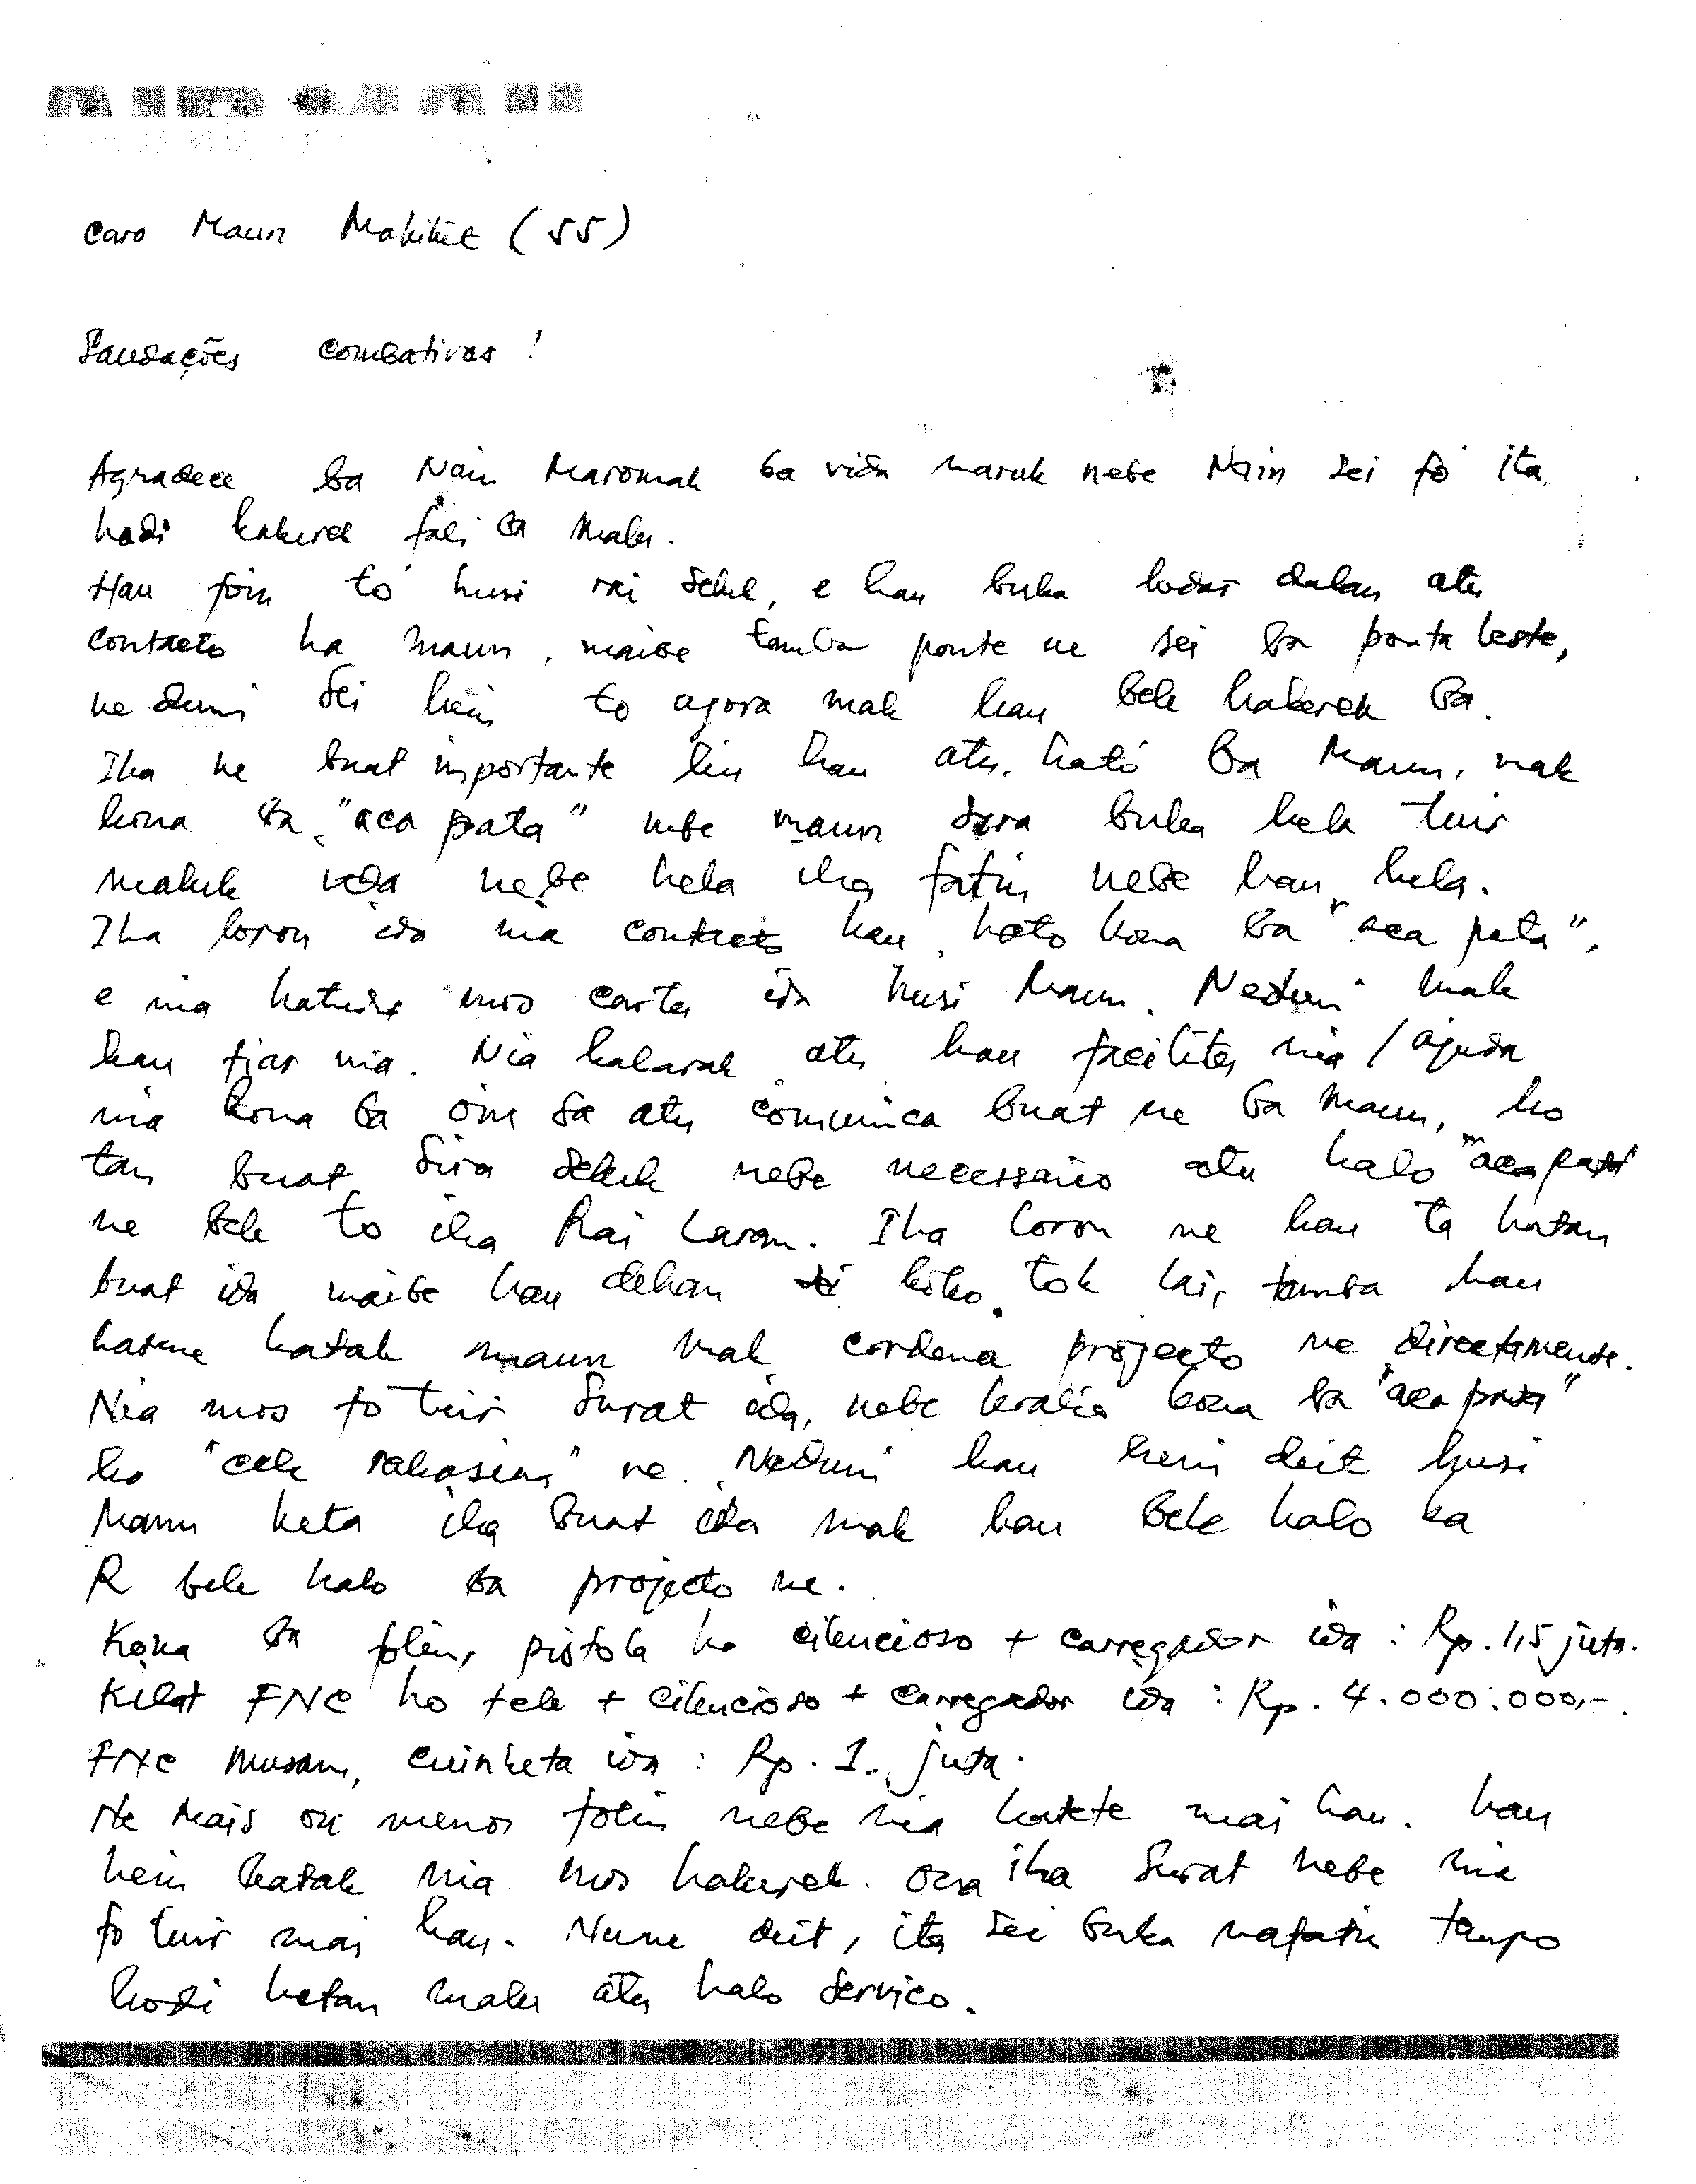 Caro Maun Mahihit (55)
Saudações combativas!
Agradece ba Nain Maromak ba vida naruk nebe Nain sei fó ita
hodi hakerek fali ba malu.
Hau foin to husi rai seluk, e hau buka lodar dalan atu
contacto ha maun, maibe tamba ponte ne sei ba ponta leste,
ne duni sei hein to agora mak hau bele hakerek ba.
Iha ne buat importante liu hau atu ható ba Maun, mak
kona ba "aca pata" nebe maun sira buka hela tuir
maluk ida nebe hela iha fatin nebe hau hela.
Iha loron ida nia contacto hau, hato kona ba "aca pata",
e nia hatudu mos carta ida husi Maun. Neduni mak
hau fiar nia. Nia hakarak atu hau facilita nia / ajuda
nia kona ba oin sa atu comunica buat ne ba Maun, ho
tan buat sira seluk nebe necessario atu halo "aca pata"
ne bele to iha Rai Laran. Iha loron ne hau ta hatan
buat ida maibe hau dehan koko tok lai, tamba hau
hatene katak maun mak cordena projecto ne directamente.
Nia mos fo tuir surat ida, nebe koalia kona ba "aca pata"
ho "cek rahasia" ne. Neduni hau hein deit husi
Maun keta iha buat ida mak hau bele halo ka
R bele halo ba projecto ne.
Kona ba folin, pistola ho cilencioso + carregador ida : Rp. 1,5 juta.
Kilat FNC ho tele + cilencioso + carregador ida : Rp. 4.000.000,-.
FNC musan, cuinheta ida : Rp. 1. juta.
Ne mais ou menos folin nebe nia hatete mai hau. hau
hein katak nia mos hakerek ona iha surat nebe nia
fo tuir mai hau. Nune deit, ita sei buka nafatin tempo
hodi hetan malu atu halo serviço.